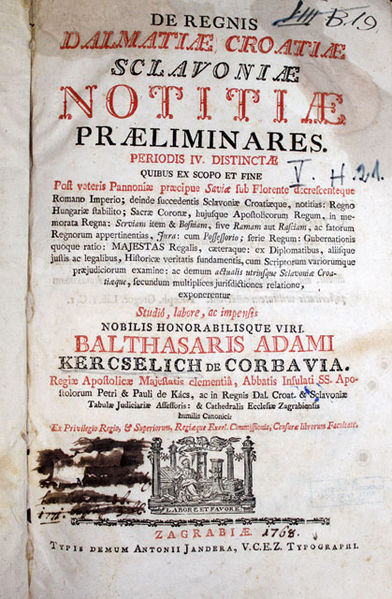 DE REGNIS
LIII B. 19
DALMATIÆ CROATIÆ
SCLAVONIÆ
NOTITIÆ
PRÆLIMINARES.
PERIODIS IV. DISTINCTÆ
V. H. 21.
QUIBUS EX SCOPO ET FINE
Post veteris Pannoniæ præcipue Saviæ sub Florente decrescenteque
Romano Imperio; deinde succedentis Sclavoniæ Croatiæque, notitias: Regno
Hungariæ stabilito; Sacræ Coronæ, hujusque Apostolicorum Regum, in me-
morata Regna: Serviam item & Bosniam, sive Ramam aut Rasciam, ac fatorum
Regnorum appertinentias, Jura: cum Possessorio; serie Regum: Gubernationis
quoque ratio: MAJESTAS Regalis, cæteraque: ex Diplomatibus, aliisque
justis ac legalibus, Historicæ veritatis fundamentis, cum Scriptorum variorumque
præjudiciorum examine: ac demum actualis utriusque Sclavoniæ Croa-
tiæque, secundum multiplices jurisdictiones relatione,
exponerentur
Studiô, labore, ac impensis
NOBILIS HONORABILISQUE VIRI.
BALTHASARIS ADAMI
KERCSELICH DE CORBAVIA.
Regiæ Apostolicæ Majestatis clementiâ, Abbatis Insulati SS. Apo-
stolorum Petri & Pauli de Kács, ac in Regnis Dal. Croat. & Sclavoniæ
Tabulæ Judiciariæ Assessoris: & Cathedralis Ecclesiæ Zagrabiensis
humilis Canonici:
Ex Privilegio Regio, & Superiorum, Regiæque Excel. Commissionis, Censuræ librorum Facultate.
LABORE ET FAVORE.
ZAGRABIÆ. 1768.
TYPIS DEMUM ANTONII JANDERA, V.C.E.Z. TYPOGRAPHI.